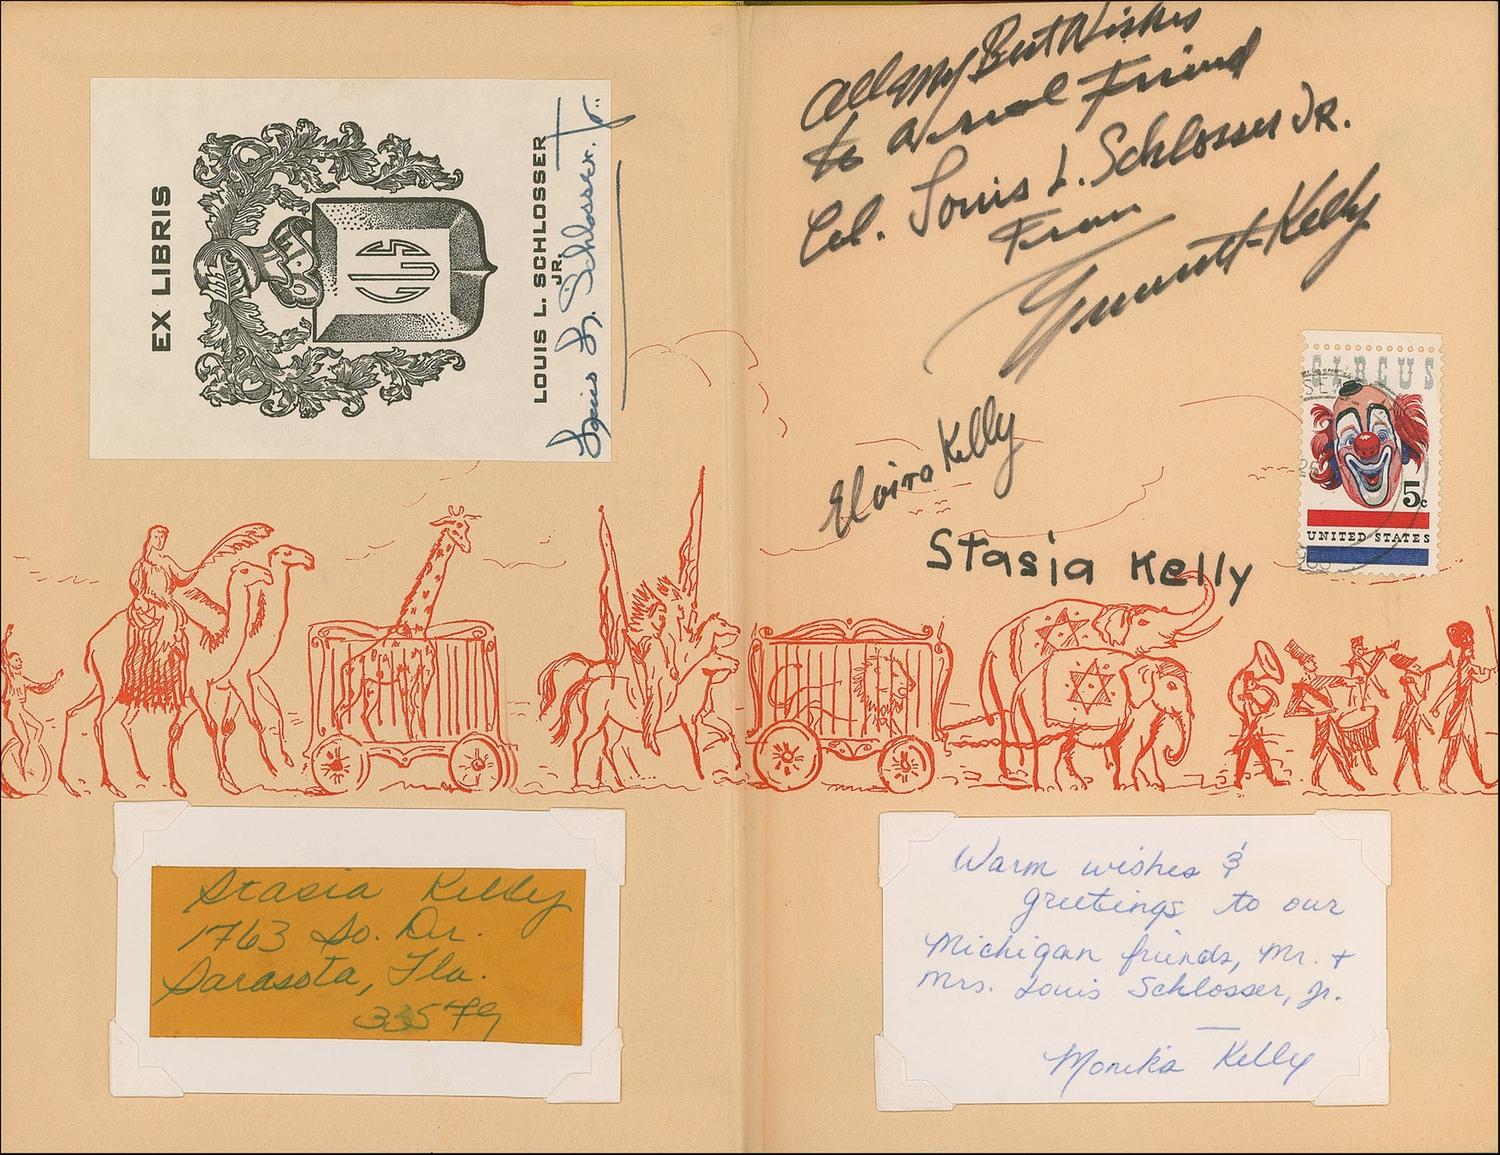 EX LIBRIS
LLS
LOUIS L. SCHLOSSER
JR.
Louis L. Schlosser, Jr.
All My Best Wishes
to a real Friend
Col. Louis L. Schlosser JR.
From
Emmett Kelly
Elvira Kelly
Stasia Kelly
CIRCUS
5c
UNITED STATES
Stasia Kelly
1763 So. Dr.
Sarasota, Fla.
33579
Warm wishes &
greetings to our
Michigan friends, Mr. +
Mrs. Louis Schlosser, Jr.
Monika Kelly